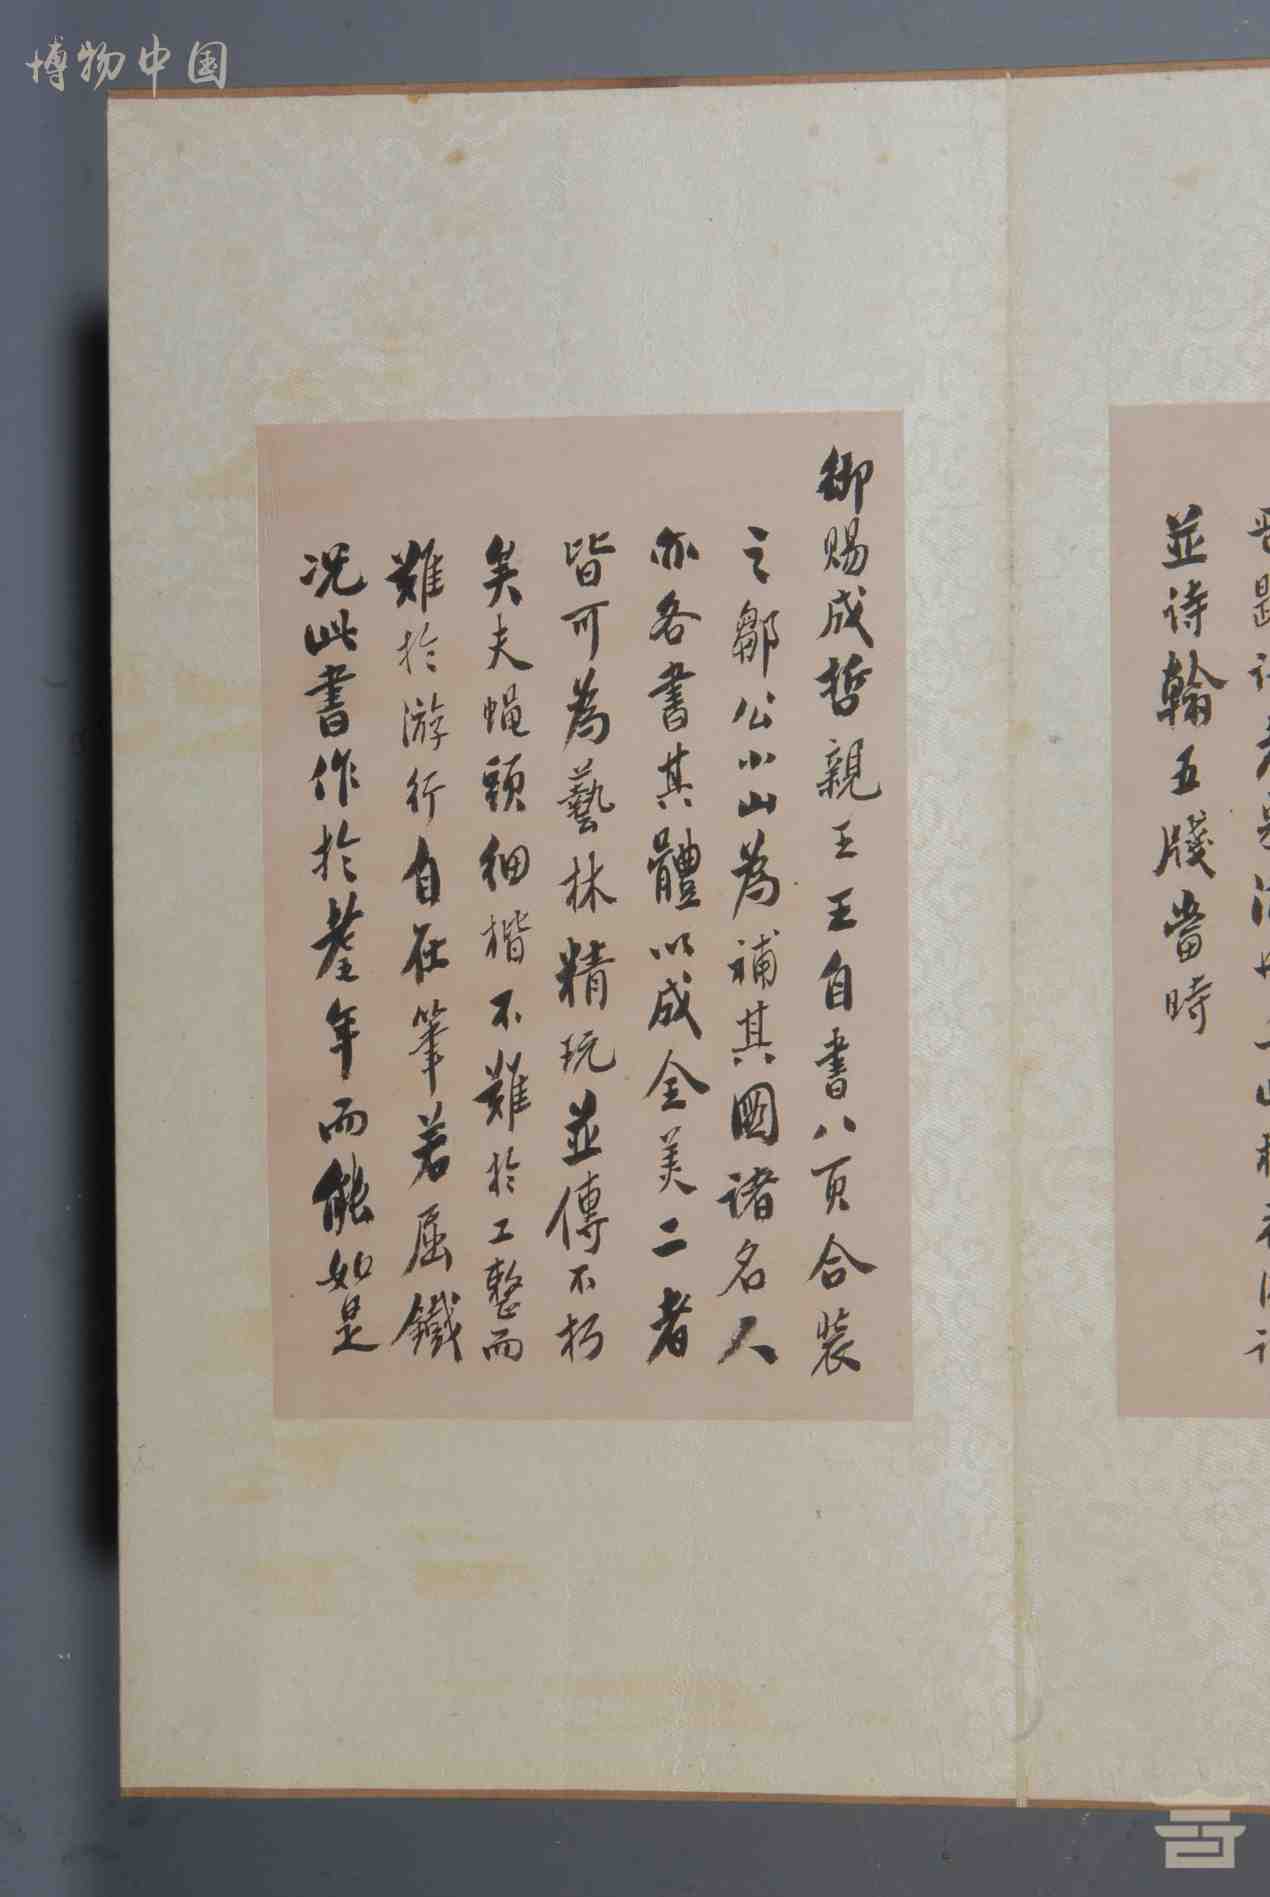 博物中国
並诗翰五牋當時
御賜成哲親王王自書八頁合裝
之鄒公小山為補其圖诸名人
亦各書其體以成全美二者
皆可為藝林精玩並傳不朽
矣夫蝇頭细楷不難於工整而
難於游行自在筆若屈鐵
况此書作於耋年而能如是